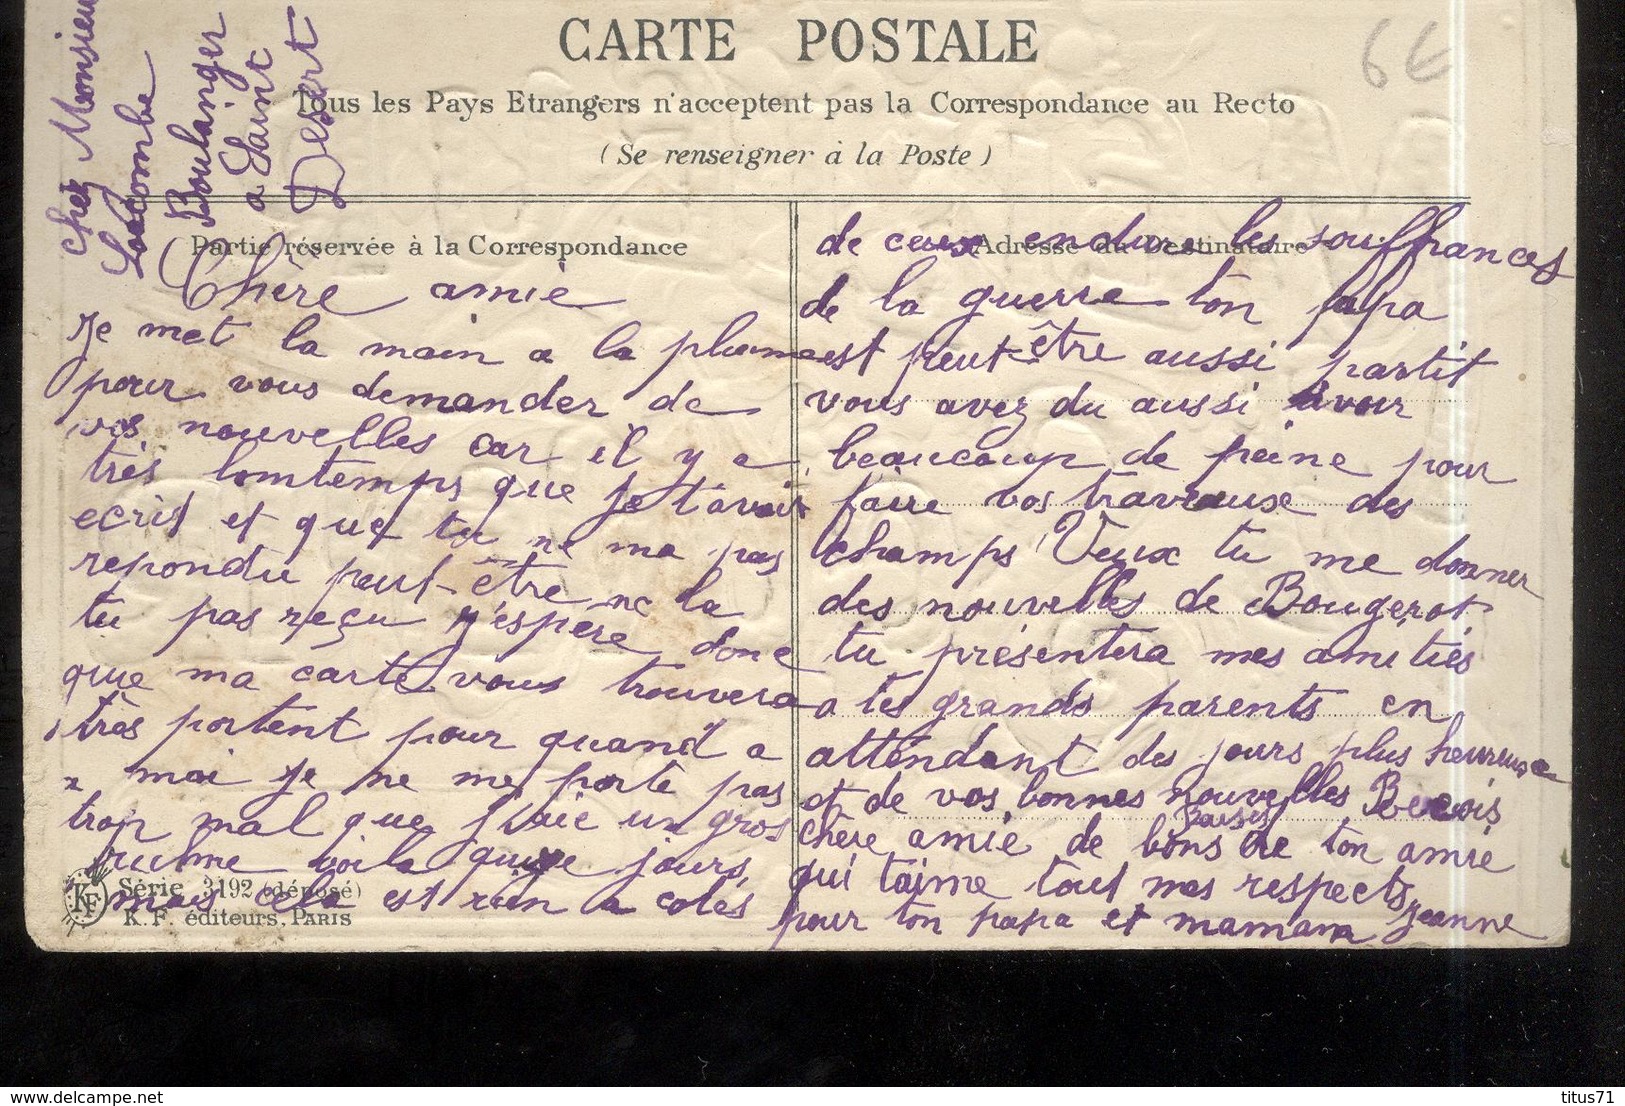 CARTE POSTALE
6€
Tous les Pays Etrangers n'acceptent pas la Correspondance au Recto
(Se renseigner à la Poste)
chez Monsieur
Lacombe
Boulanger
a Saint
Desert
Partie réservée à la Correspondance
Adresse du Destinataire
Chère amie
Je met la main a la plume
pour vous demander de
vos nouvelles car il y a
très lomtemps que je t'avais
ecrit et que tu ne ma pas
repondu peut-être ne la
tu pas reçu J'éspère donc
que ma carte vous trouvera
très portent pour quand a
moi je ne me porte pas
trop mal que j'vaie un gros
rulme voila quinze jours
mais cela est rien a cotés
de ceux endure les souffrances
de la guerre ton papa
est peut-être aussi partit
vous avez du aussi avoir
beaucoup de peine pour
faire vos travause des
champs Veux tu me donner
des nouvelles de Bougerot
tu présentera mes amitiés
a tes grands parents en
attendant des jours plus heureuse
et de vos bonnes nouvelles Recois
chère amie de bons baises de ton amie
qui taime tout mes respects
pour ton papa et mamam Jeanne
KF
Série 3192 (déposé)
K. F. éditeurs, PARIS
www.delcampe.net
titus71